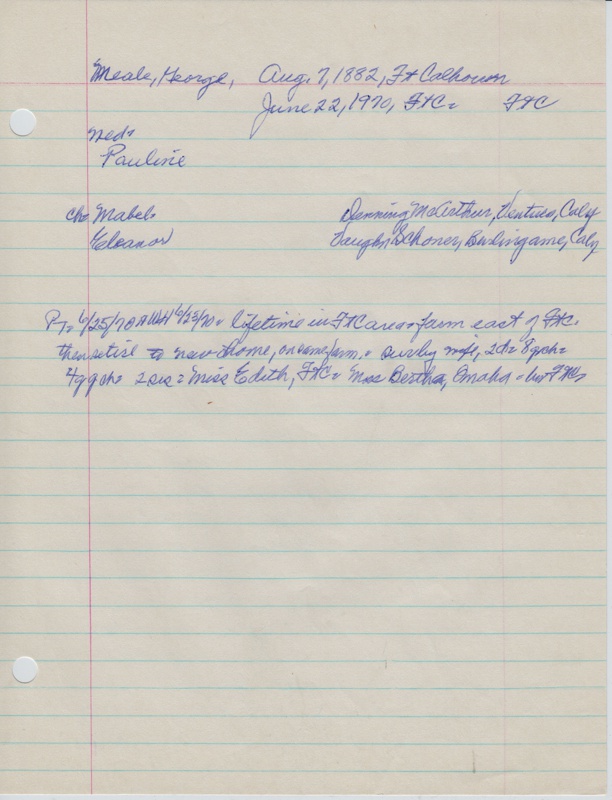 Meale, George, Aug. 7, 1882, Ft Calhoun
June 22, 1970, FtC= FtC
Wed=
Pauline
ch= Mabel= Denning McArthur, Ventura, Calif
Eleanor Vaughn Schoner, Burlingame, Calif
PT= 6/25/70 6/25/70= lifetime in FtC area= farm east of FtC=
then retire to new home, on same farm.= surv by wife, 2d= 8gch=
4ggch= 2sis= Miss Edith, FtC= Miss Bertha, Omaha= bur FtC=